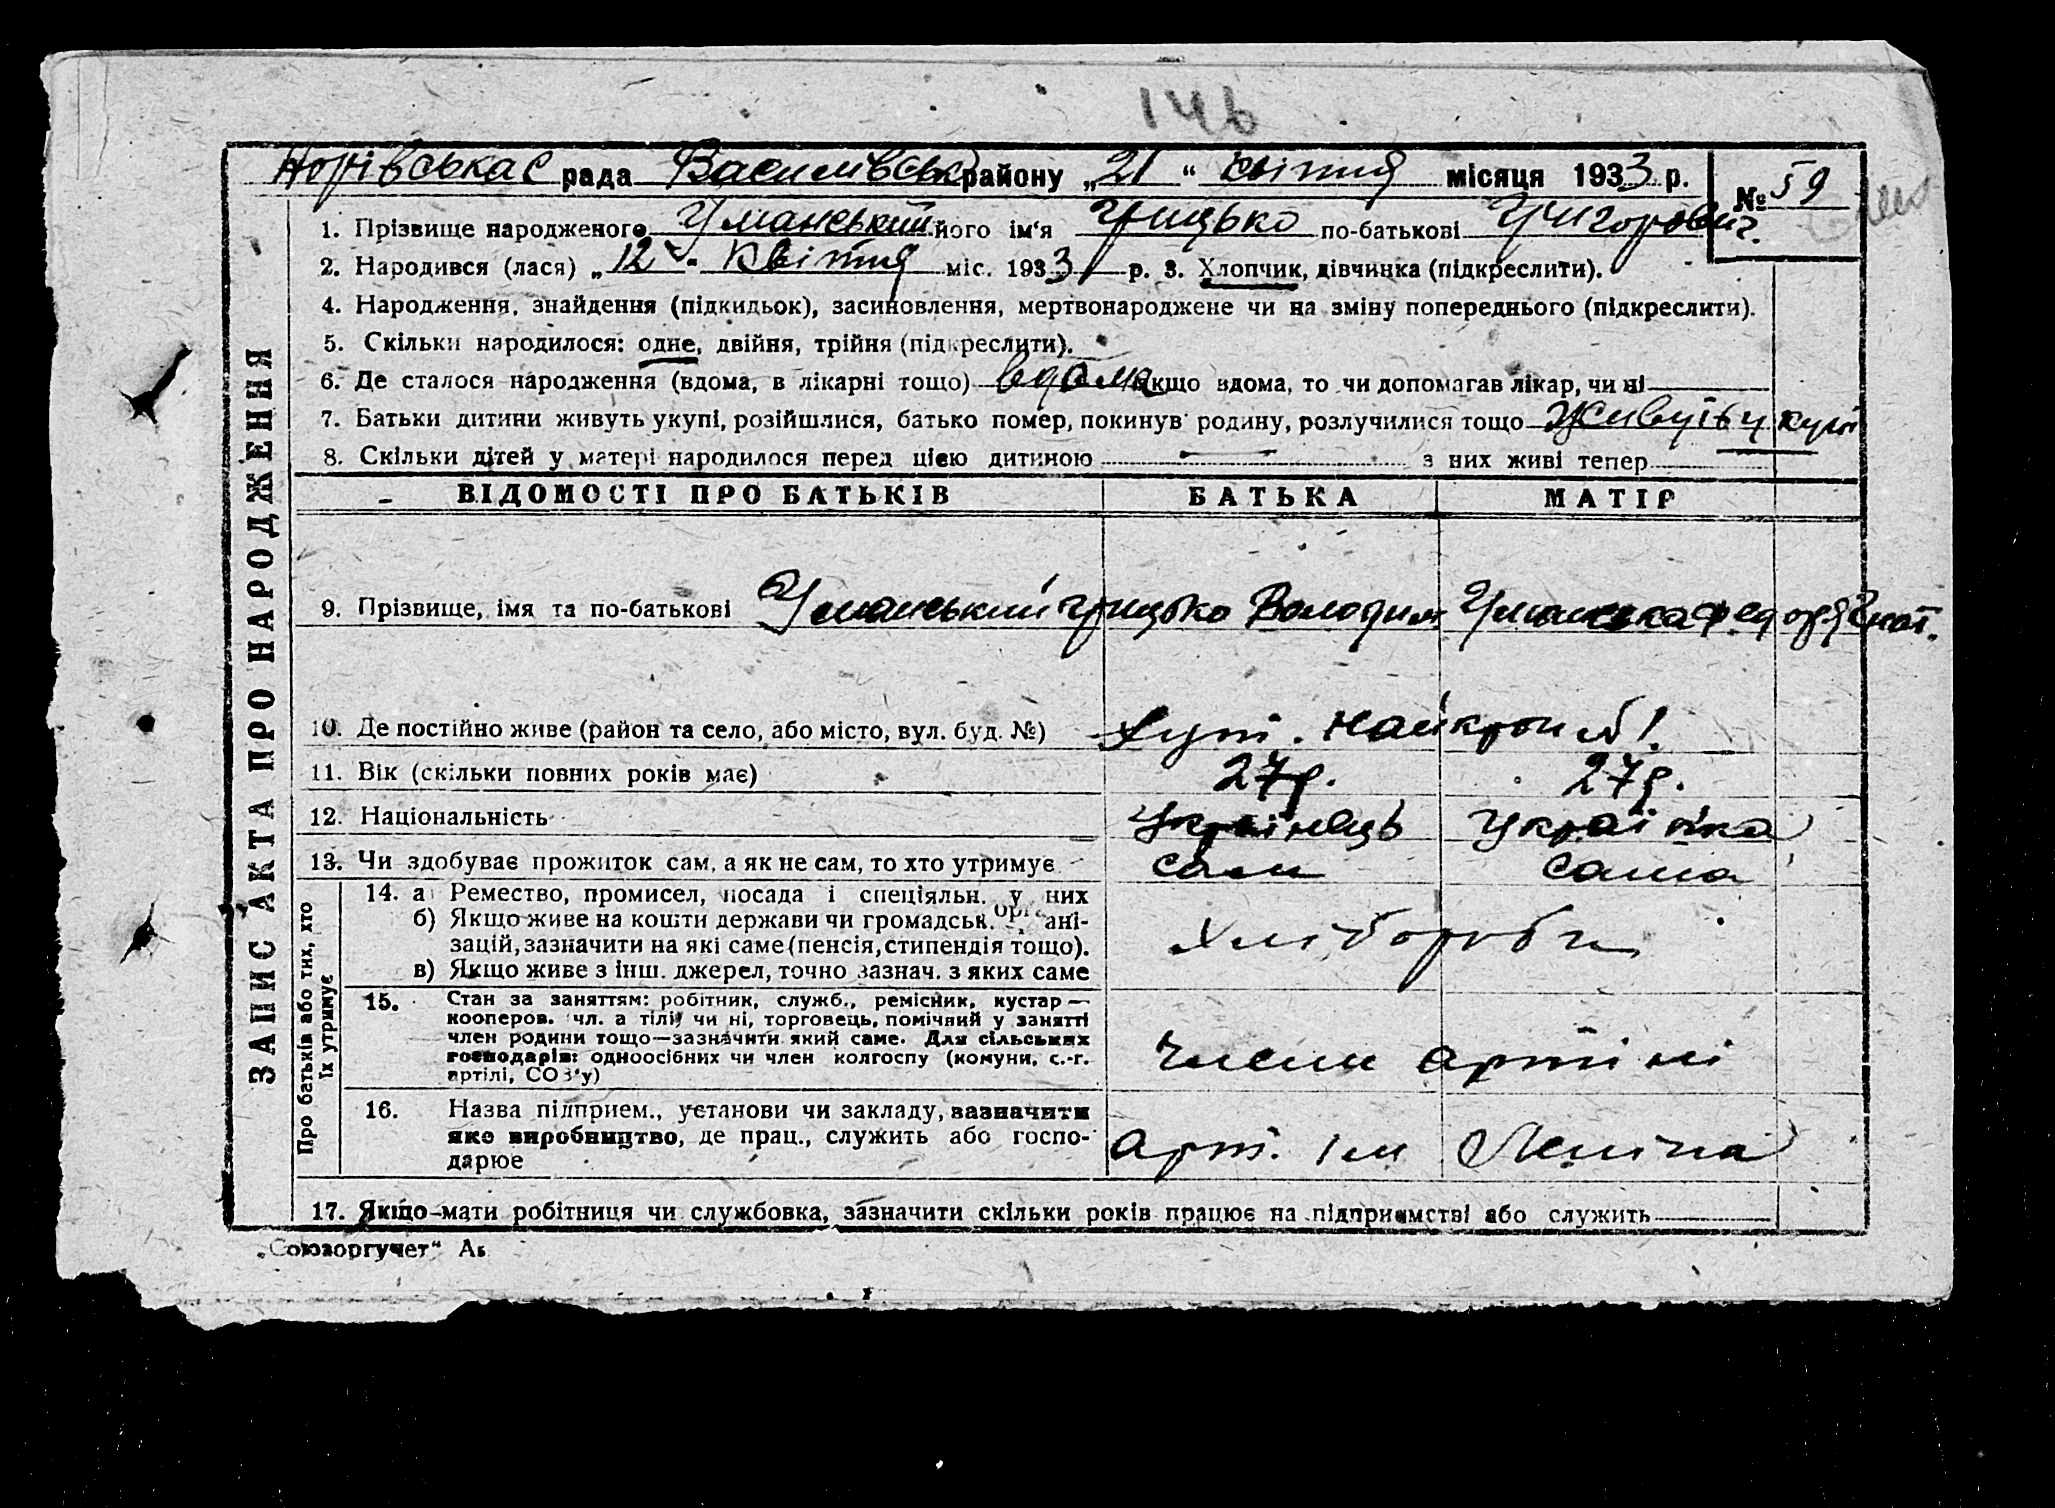 146
рада Василівськ району „21“ квітня місяця 1933 р.
№ 59
1. Прізвище народженого Уманський його ім'я Грицько по-батькові Григорович.
2. Народився (лася) „12“ Квітня міс. 1933 р. 3. Хлопчик, дівчинка (підкреслити).
4. Народження, знайдення (підкидьок), засиновлення, мертвонароджене чи на зміну попереднього (підкреслити).
5. Скільки народилося: одне, двійня, трійня (підкреслити).
6. Де сталося народження (вдома, в лікарні тощо) вдома Якщо вдома, то чи допомагав лікар, чи ні
7. Батьки дитини живуть укупі, розійшлися, батько помер, покинув родину, розлучилися тощо Живуть у купі
8. Скільки дітей у матері народилося перед цією дитиною — з них живі тепер
ЗАПИС АКТА ПРО НАРОДЖЕННЯ
ВІДОМОСТІ ПРО БАТЬКІВ БАТЬКА МАТІР
9. Прізвище, імя та по-батькові Уманський Грицько Володим Уманська Федора
10. Де постійно живе (район та село, або місто, вул. буд. №) Хут.
11. Вік (скільки повних років має) 27р. 27р.
12. Національність Українець Українка
13. Чи здобуває прожиток сам, а як не сам, то хто утримує сам сама
Про батьків або тих, хто
їх утримує
14. а Ремество, промисел, посада і спеціяльн. у них
б) Якщо живе на кошти держави чи громадськ. орґані-
зацій, зазначити на які саме (пенсія, стипендія тощо).
в) Якщо живе з інш. джерел, точно зазнач. з яких саме
Хлібороби
15. Стан за заняттям: робітник, служб., ремісник, кустар —
кооперов. чл. артілі, чи ні, торговець, помічний у занятті
член родини тощо—зазначити який саме. Для сільських
господарів: одноосібних чи член колгоспу (комуни, с.-г.
артілі, СОЗ'у)
Члени артілі
16. Назва підприєм., установи чи закладу, зазначити
яке виробництво, де прац., служить або госпо-
дарює
Арт. ім Леніна
17. Якщо мати робітниця чи службовка, зазначити скільки років працює на підприємстві або служить
„Союзоргучет“